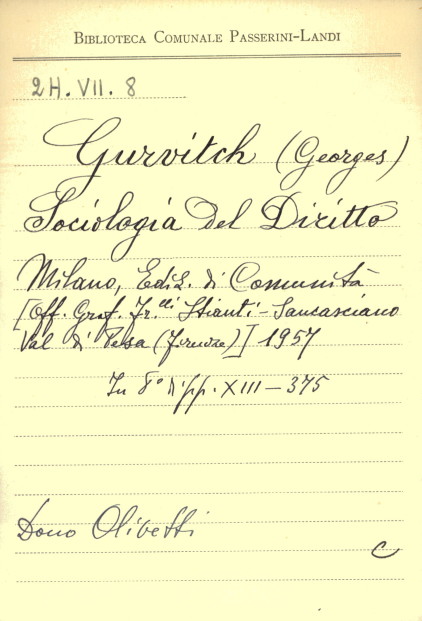 BIBLIOTECA COMUNALE PASSERINI-LANDI
2H. VII. 8
Gurvitch (Georges)
Sociologia del Diritto
Milano, Ediz. di Comunità
[Off. Graf. Fr.lli Stianti - Sancasciano
Val di Pesa (Firenze)] 1957
In 8° di pp. XIII - 375
Dono Olivetti
C